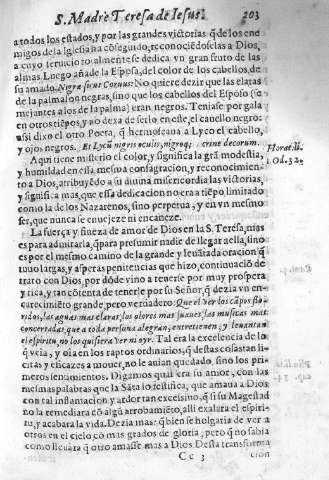 S. Madre Teresa de Iesus. 203
a todos los estados, y por las grandes victorias q̃ de los ene
migos de la Iglesia ha cõseguido, reconociẽdoselas a Dios,
a cuyo seruicio totalmẽte se dedica vn gran fruto de las
almas. Luego añade la Esposa, del color de los cabellos, de
su amado. Nigra sicut Coruus: No quiere dezir que las elatas
de la palma son negras, sino que los cabellos del Esposo (se
mejantes a los de la palma) eran negros. Teniase por gala
en otros tiẽpos, y no dexa de serlo en este, el cauello negro:
assi dixo el otro Poeta, q̃ hermoseaua a Lyco el cabello,
y ojos negros. Et Lycũ nigris oculis, nigroq; crine decorum.
Horat. li.
1. Od. 32.
Aqui tiene misterio el color, y significa la grã modestia,
y humildad en esta mesma consagracion, y reconocimien
to a Dios, atribuyẽdo a su diuina misericordia las victorias,
y significa mas, que esta dedicacion no era a tiẽpo limitado
como la de los Nazarenos, sino perpetua, y en vn mesmo
ser, que nunca se enuejeze ni encaneze.
La fuerça y fineza de amor de Dios en la S. Teresa, mas
es para admirarla, q̃ para presumir nadie de llegar a ella, sino
es por el mesmo camino de la grande y leuãtada oracion q̃
tuuo largas, y asperas penitencias que hizo, continuaciõ de
trato con Dios, por dõde vino a tenerse por muy prospera
y rica, y tan cõtenta de tenerle por su Señor, q̃ dezia vn en-
carecimiẽto grande, pero verdadero: Que el ver los cãpos flo-
ridos, las aguas mas claras, los olores mas suaues, las musicas mas
concertadas, que a toda persona alegran, entretienen, y leuantan
el espiritu, no los quisiera ver ni oyr. Tal era la excelencia de lo
q̃ veia, y oìa en los raptos ordinarios, q̃ destas cosas tan li-
citas y eficazes a mouer, no le auian quedado, sino los pri-
meros sentimientos. Digamos qual era su amor, con las
mesmas palabras que la Sãta lo testifica, que amaua a Dios
con tal instanlacion y ardor tan excesiuo, q̃ si su Magestad
no la remediara cõ algũ arrobamiẽto, alli exalara el espiri-
tu, y acabara la vida. Dezia mas: q̃ bien se holgaria de ver a
otros en el cielo cõ mas grados de gloria, pero q̃ no sabia
como lleuara q̃ otro amasse mas a Dios. Desta transforma
Cc 3 cion